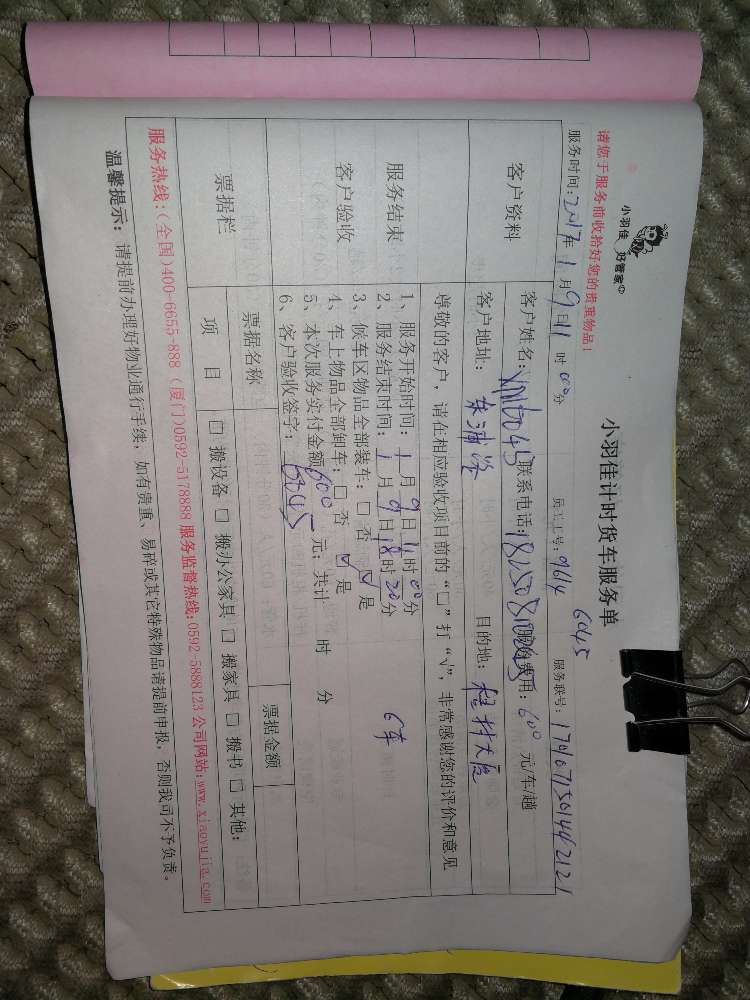 请您于服务前收拾好您的贵重物品!
小羽佳 好管家
小羽佳计时货车服务单
6045
服务时间:2017年1月9日11时00分 员工工号:9614 服务联号:
客户资料
客户姓名: 联系电话: 服务费用:600元/车/趟
客户地址: 目的地:
尊敬的客户,请在相应验收项目前的“□”打“√”,非常感谢您的评价和意见
服务结束
客户验收
1、服务开始时间:1月9日11时00分
2、服务结束时间:1月9日18时20分
3、候车区物品全部装车:□否 ☑是
4、车上物品全部卸车:□否 ☑是
5、本次服务实付金额600元;共计 时 分
6、客户验收签字:6045
6车
票据栏
票据名称 票据金额
项 目 □搬设备 □搬办公家具 □搬家具 □搬书 □其他:
服务热线:(全国)400-6655-888 (厦门)0592-5178888 服务监督热线:0592-5888123 公司网站:www.xiaoyujia.com
温馨提示: 请提前办理好物业通行手续,如有贵重、易碎或其它特殊物品请提前申报,否则我司不予负责。